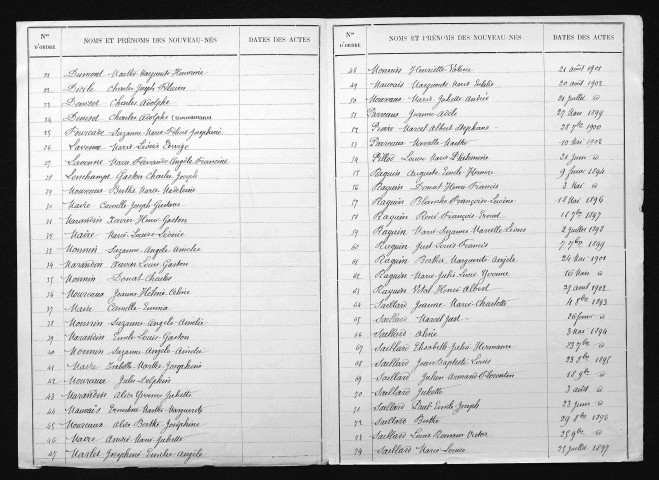 Nos D'ORDRE NOMS ET PRÉNOMS DES NOUVEAU-NÉS DATES DES ACTES
21 Dumont Marthe Marguerite Honorine
22 Décile Charles Joseph
23 Doussot Charles Adolphe
24 Doussot Charles Adolphe
25 Suzanne Marie Joséphine
26 Lavenne Marie
27 Lavenne Marie Fernande Angèle Francine
28 Lonchampt Gaston Charles Joseph
29 Mouveaux Berthe Marie Madeleine
30 Maire Camille Joseph Gustave
31 Marandin Xavier Henri Gaston
32 Maire Marie Louise Léonie
33 Monnin Suzanne Angèle Amélie
34 Marandin Xavier Louis Gaston
35 Monnin Donat Charles
36 Mouveaux Jeanne Hélène Céline
37 Maire Camille Emma
38 Monnin Suzanne Angèle Amélie
39 Marandin Emile Louis Gaston
40 Monnin Suzanne Angèle Amélie
41 Maire Isabelle Marthe Joséphine
42 Mouveaux Jules Delphin
43 Marandin Alice Yvonne Juliette
44 Mauvais Ernestine Marthe Marguerite
45 Mouveaux Alice Berthe Joséphine
46 Maire André Marie Juliette
47 Joséphine Emilie Angèle
Nos D'ORDRE NOMS ET PRÉNOMS DES NOUVEAU-NÉS DATES DES ACTES
48 Monnin Henriette Valérie 21 août 1901
49 Mauvais Marguerite Marie 20 août 1902
50 Mouveaux Marie Juliette Andrée 21 juillet d
51 Parveaux Jeanne Adèle 27 1899
52 Marcel Albert Stéphane 28 7bre 1900
53 Parreaux Marcelle Marthe 10 mai 1902
54 Pillod Louise Marie Philomène 21 juin d
55 Raguin Auguste Emile Honoré 9 1894
56 Raguin Donat Henri Francis 3 mai d
57 Raguin Blanche Françoise Lucine 18 mai 1896
58 Raguin René François Ernest 18 7bre 1897
59 Raguin Marie Suzanne Marcelle 2 juillet 1898
60 Raguin Just Louis Francis 7 7bre 1899
61 Raguin Berthe Marguerite Angèle 24 1901
62 Raguin Marie Julie Yvonne 16 d
63 Raguin Vital Henri Albert 27 avril 1902
64 Saillard Jeanne Marie Charlotte 4 8bre 1893
65 Saillard Marcel Just d
66 Saillard Aline 3 mai 1894
67 Saillard Elisabeth Julia Hermance 23 7bre d
68 Saillard Jean Baptiste Louis 23 8bre 1895
69 Saillard Julien Armand Florentin 18 9bre d
70 Saillard Juliette 3 août d
71 Saillard Paul Emile Joseph 23 juin d
72 Saillard Berthe 29 8bre 1896
73 Saillard Louis Romain Victor 25 9bre d
74 Saillard Marie Louise 25 juillet 1897